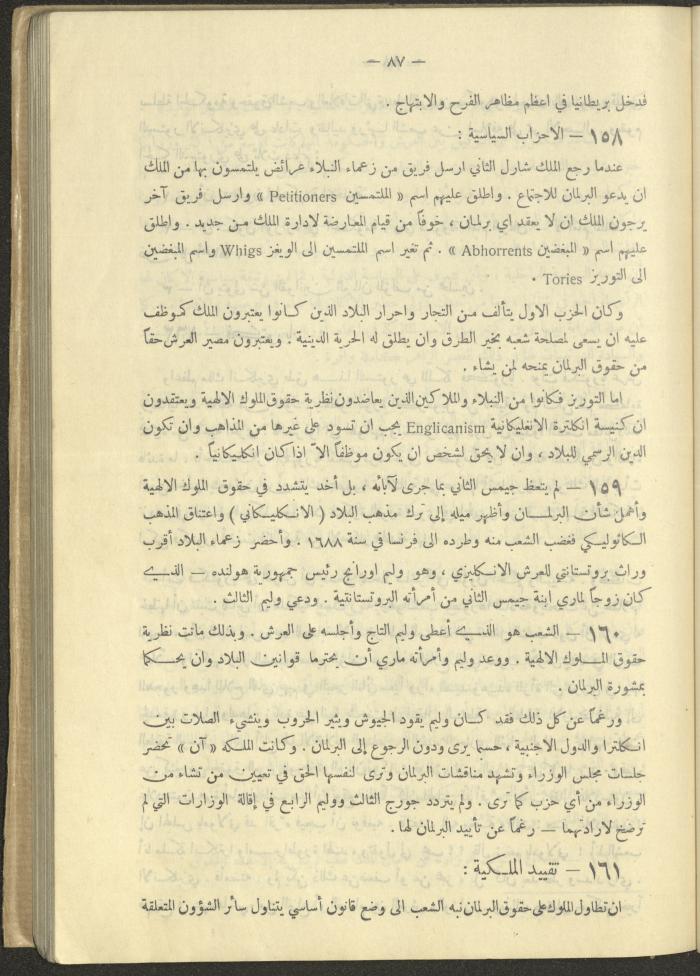 — ٨٧ —
فدخل بريطانيا في اعظم مظاهر الفرح والابتهاج .
١٥٨ — الاحزاب السياسية :
عندما رجع الملك شارل الثاني ارسل فريق من زعماء النبلاء عرائض يلتمسون بها من الملك
ان يدعو البرلمان للاجتماع . واطلق عليهم اسم « الملتمسين Petitioners » وارسل فريق آخر
يرجون الملك ان لا يعقد اي برلمان ، خوفاً من قيام المعارضة لادارة الملك من جديد . واطلق
عليهم اسم « المبغضين Abhorrents » . ثم تغير اسم الملتمسين الى الويغز Whigs واسم المبغضين
الى التوريز Tories .
وكان الحزب الاول يتألف من التجار واحرار البلاد الذين كانوا يعتبرون الملك كموظف
عليه ان يسعى لمصلحة شعبه بخير الطرق وان يطلق له الحرية الدينية . ويعتبرون مصير العرش حقاً
من حقوق البرلمان يمنحه لمن يشاء .
اما التوريز فكانوا من النبلاء والملاكين الذين يعاضدون نظرية حقوق الملوك الالهية ويعتقدون
ان كنيسة انكلترة الانغليكانية Englicanism يجب ان تسود على غيرها من المذاهب وان تكون
الدين الرسمي للبلاد ، وان لا يحق لشخص ان يكون موظفاً الاّ اذا كان انكليكانياً .
١٥٩ — لم يتعظ جيمس الثاني بما جرى لآبائه ، بل أخد يتشدد في حقوق الملوك الالهية
وأهمل شأن البرلمان وأظهر ميله إلى ترك مذهب البلاد ( الانكليكاني ) واعتناق المذهب
الكاثوليكي فغضب الشعب منه وطرده الى فرنسا في سنة ١٦٨٨ . وأحضر زعماء البلاد أقرب
وراث بروتستانتي للعرش الانكليزي ، وهو وليم اورانج رئيس جمهورية هولنده — الذي
كان زوجاً لماري ابنة جيمس الثاني من أمرأته البروتستانتية . ودعي وليم الثالث .
١٦٠ — الشعب هو الذي أعطى وليم التاج وأجلسه على العرش . وبذلك ماتت نظرية
حقوق الملوك الالهية . ووعد وليم وأمرأته ماري أن يحترما قوانين البلاد وان يحكما
بمشورة البرلمان .
ورغماً عن كل ذلك فقد كان وليم يقود الجيوش ويثير الحروب وينشيء الصلات بين
انكلترا والدول الاجنبية ، حسبما يرى ودون الرجوع إلى البرلمان . وكانت الملكه « آن » تحضر
جلسات مجلس الوزراء وتشهد مناقشات البرلمان وترى لنفسها الحق في تعيين من تشاء من
الوزراء من أي حزب كما ترى . ولم يتردد جورج الثالث ووليم الرابع في إقالة الوزارات التي لم
ترضخ لارادتهما — رغماً عن تأييد البرلمان لها .
١٦١ — تقييد الملكية :
ان تطاول الملوك على حقوق البرلمان نبه الشعب الى وضع قانون أساسي يتناول سائر الشؤون المتعلقة